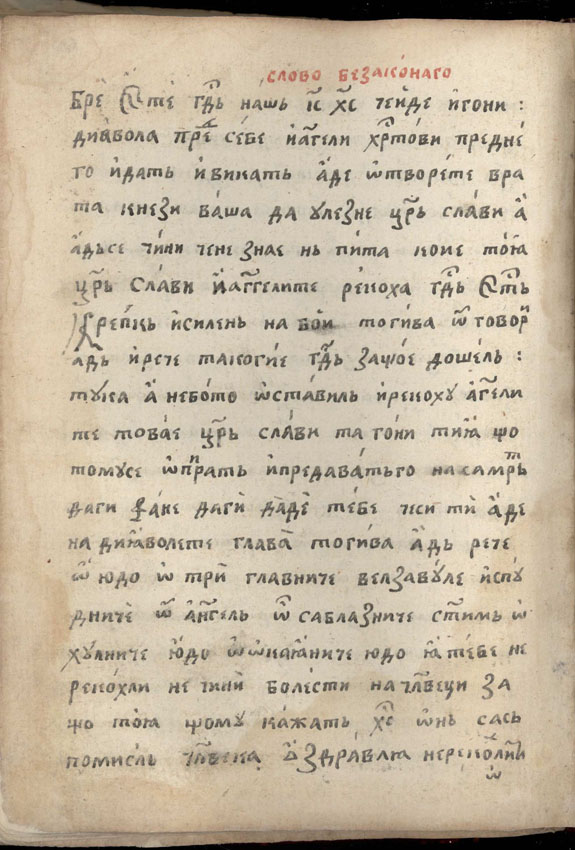 слово беꙁако́наго
бре́ гдⷭ҇ь на́шь і҆с х҇с че и҆де и҆ гони :
диавола пре себе и҆ а҆г҃ели хрⷭ҇тови предне
го и҆дать и҆ викать а҆де ѿворе́те вра
та кнеꙁи ва́ша да улеꙁне цр҃ь сла́ви а҆
а҆дьсе чини че не ꙁнае нь пита кое є тоꙗ
цр҃ь сла́ви и҆ а҆г҃гелите рекоха гдⷭ҇ь
крепкь и҆ силень на бои тоги́ва
а҆дь и҆ рече такоги́е гдⷭ҇ь ꙁащо́е дошель :
тука а҆ небото ѡ҆ставиль и҆ рекоху а҆г҃ели
те това́е цр҃ь сла́ви та гони тиꙗ҆ що
томусе ѡ҆прать и҆ предаватьго на самрⷮь
даги фа́не даги даде́ те́бе чи си ти а҆де
на диꙗ҆волете глава҆ тоги́ва а҆дь рече
ѡ҆ юдо ѡ҆ три главниче велꙁаву́ле и҆спу
дниче ѡ҆ а҆нг҃ель ѡ҆ саблаꙁниче ст҃имь ѡ҆
хулниче ю҆до ѡ҆ ѡ҆каꙗ҆ниче юдо ꙗ҆ тебе не
реко́хли не чини бо́лести на чл҃веци ꙁа
що тоꙗ҆ щому ка́жать х҇с ѡ҆нь сась
помисль чл҃века ꙁдра́влю не реко́хли
ѡ҆